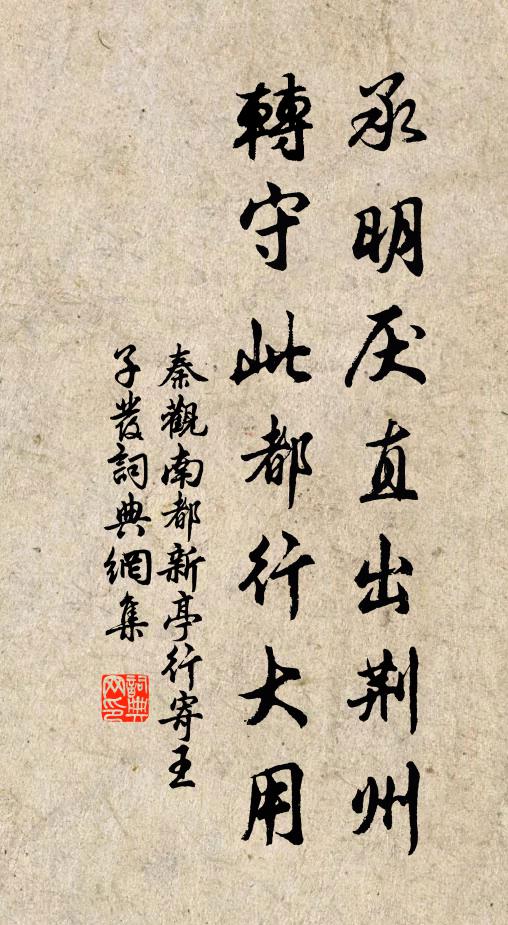 承明厌直出荆州
轉守此都行大用
秦觀南都新亭行寄王
子發詞典網集
詞典
网印